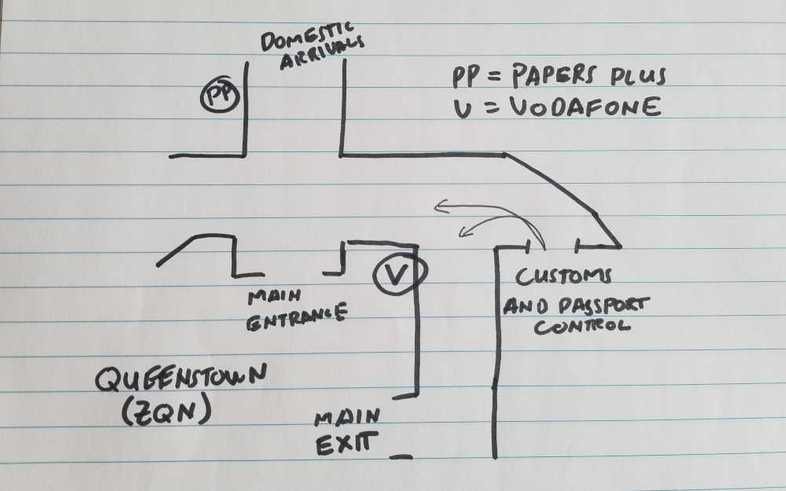 DOMESTIC
ARRIVALS
PP
PP = PAPERS PLUS
V = VODAFONE
V
CUSTOMS
AND PASSPORT
CONTROL
MAIN
ENTRANCE
QUEENSTOWN
(ZQN)
MAIN
EXIT